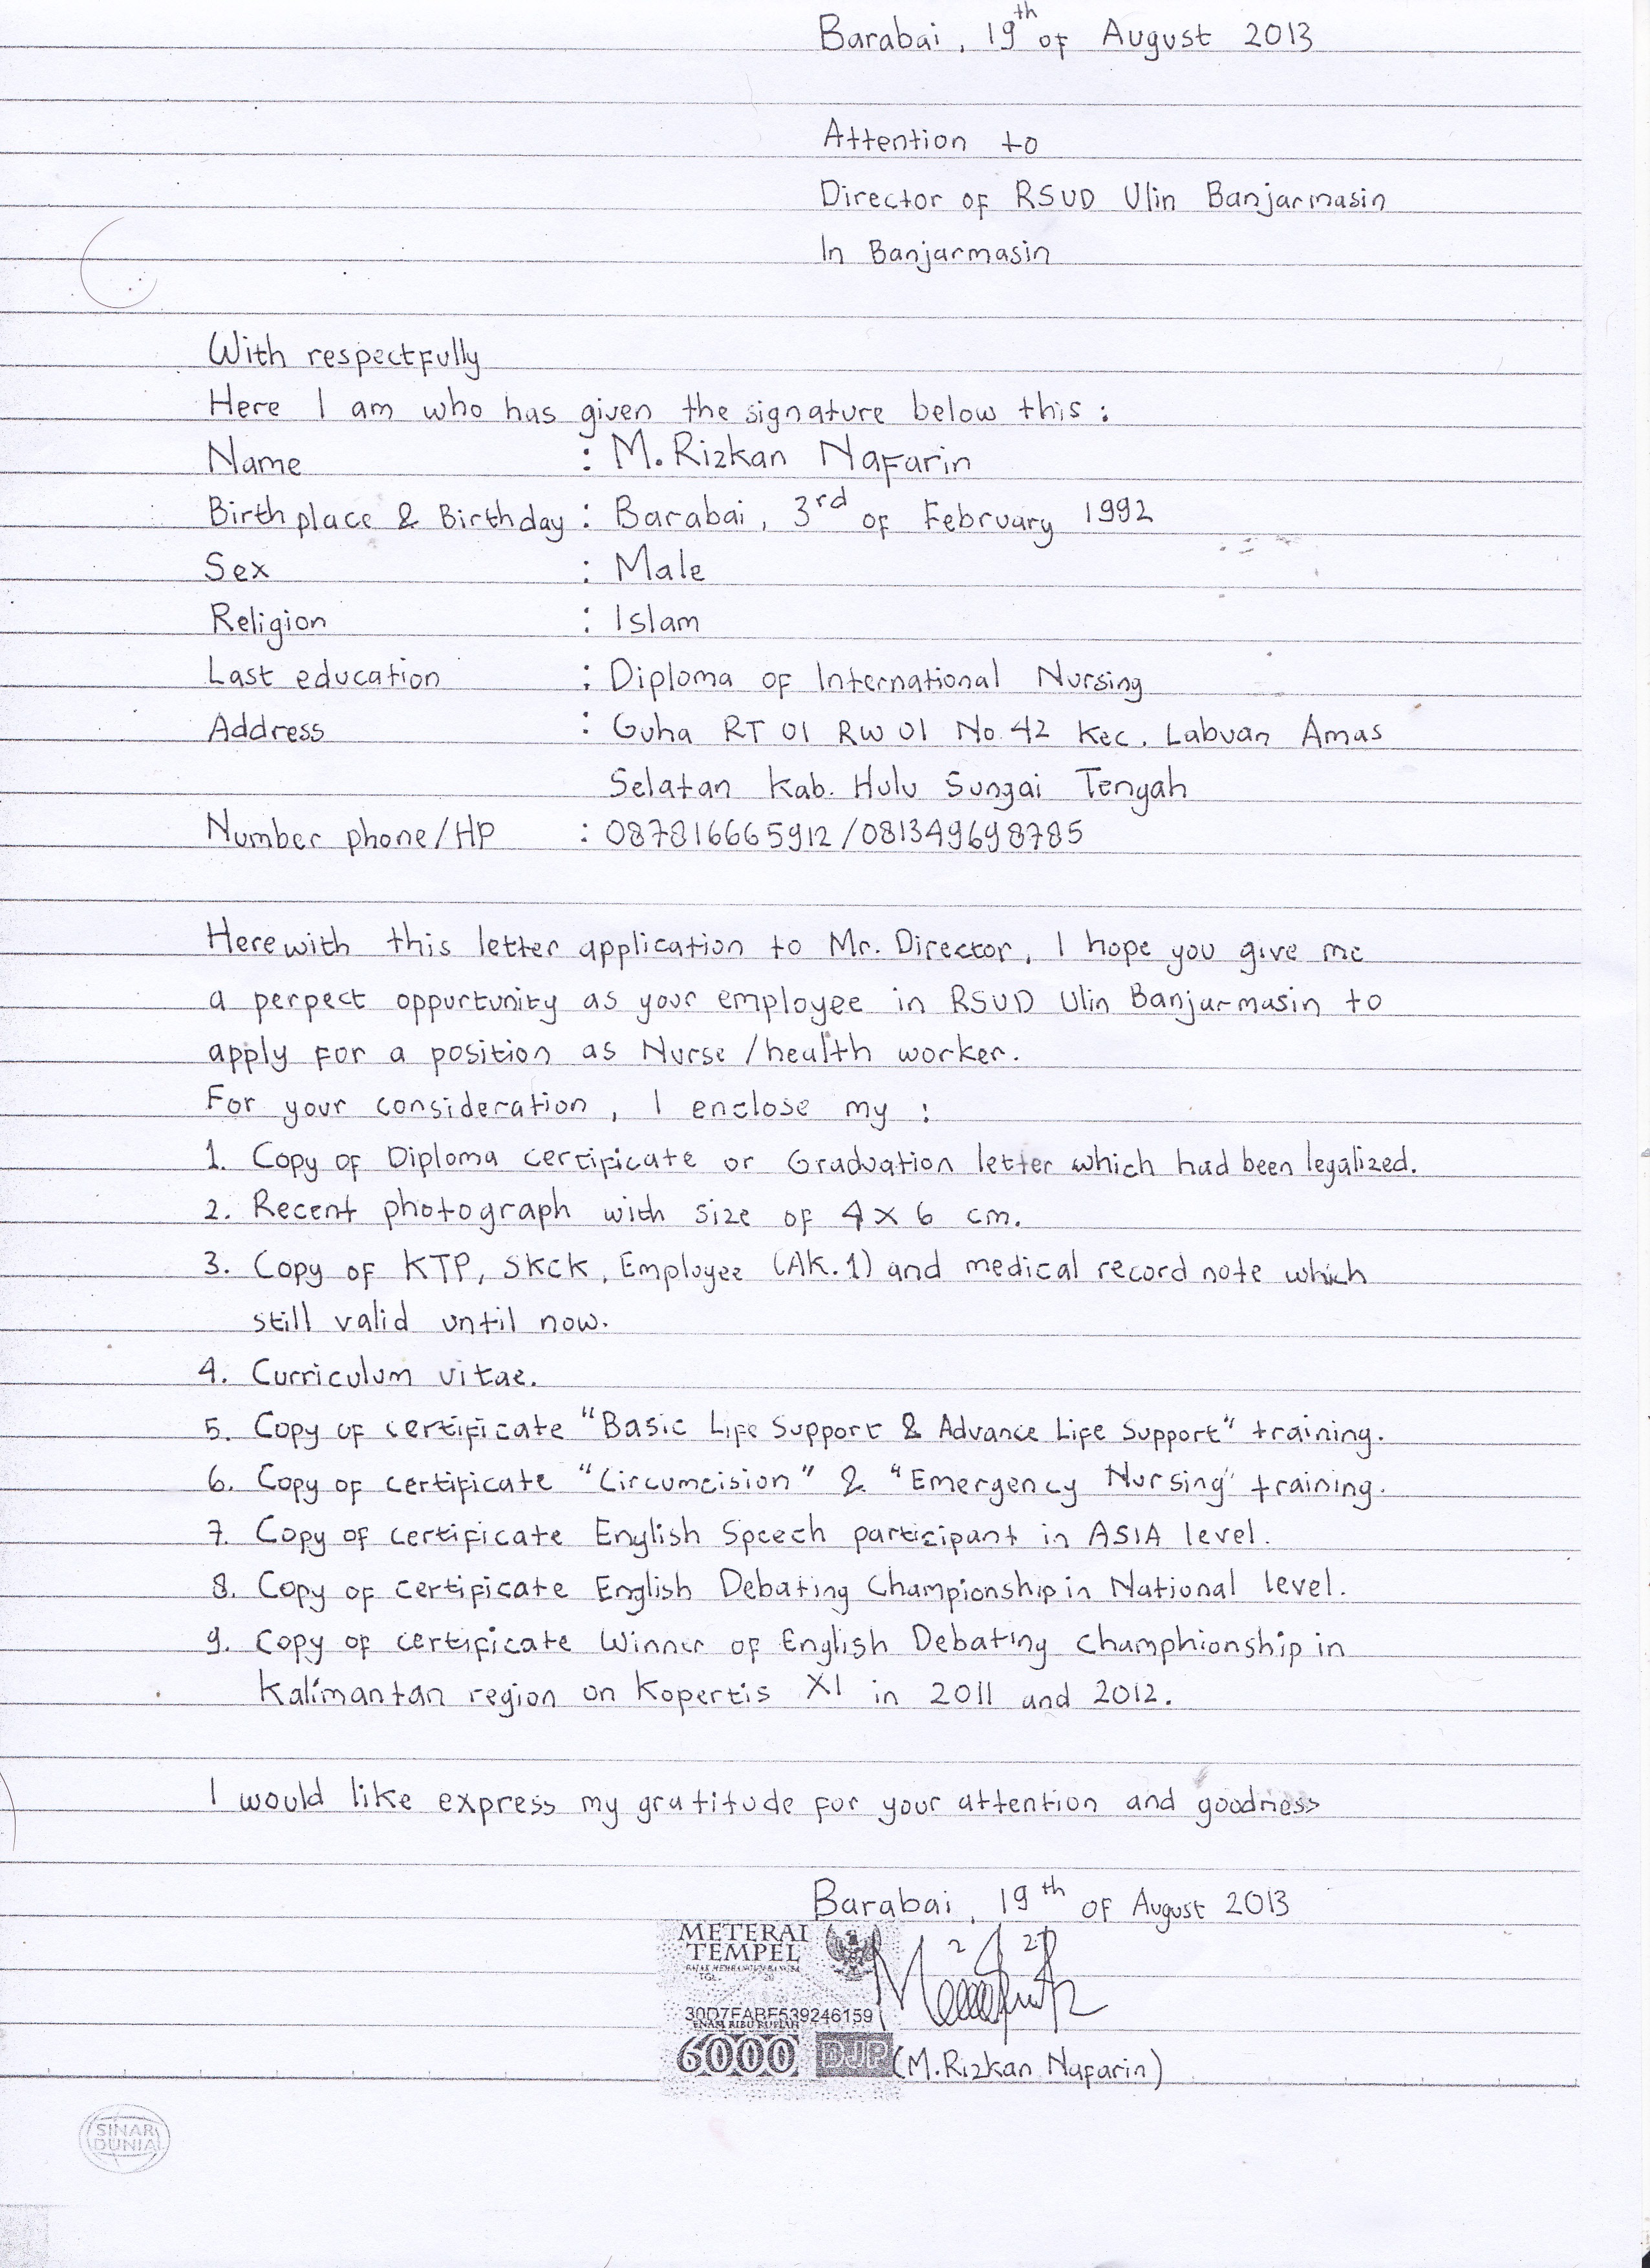 Barabai, 19th of August 2013
Attention to
Director of RSUD Ulin Banjarmasin
In Banjarmasin
With respectfully
Here I am who has given the signature below this :
Name : M. Rizkan Nafarin
Birth place & Birthday : Barabai, 3rd of February 1992
Sex : Male
Religion : Islam
Last education : Diploma of International Nursing
Address : Guha RT 01 RW 01 No. 42 Kec. Labuan Amas
Selatan Kab. Hulu Sungai Tengah
Number phone/HP : 087816665912/081349698785
Herewith this letter application to Mr. Director, I hope you give me
a perpect oppurtunity as your employee in RSUD Ulin Banjarmasin to
apply for a position as Nurse/health worker.
For your consideration, I enclose my :
1. Copy of Diploma certificate or Graduation letter which had been legalized.
2. Recent photograph with size of 4 x 6 cm.
3. Copy of KTP, SKCK, Employee (AK.1) and medical record note which
still valid until now.
4. Curriculum vitae.
5. Copy of certificate "Basic Life Support & Advance Life Support" training.
6. Copy of certificate "Circumcision" & "Emergency Nursing" training.
7. Copy of certificate English Speech participant in ASIA level.
8. Copy of certificate English Debating Championship in National level.
9. Copy of certificate Winner of English Debating champhionship in
Kalimantan region on Kopertis XI in 2011 and 2012.
I would like express my gratitude for your attention and goodness
Barabai, 19th of August 2013
METERAI
TEMPEL
PAJAK MEMBANGUN BANGSA
TGL. 20
30D7EABF539246159
ENAM RIBU RUPIAH
6000 DJP
(M. Rizkan Nafarin)
SINAR
DUNIA